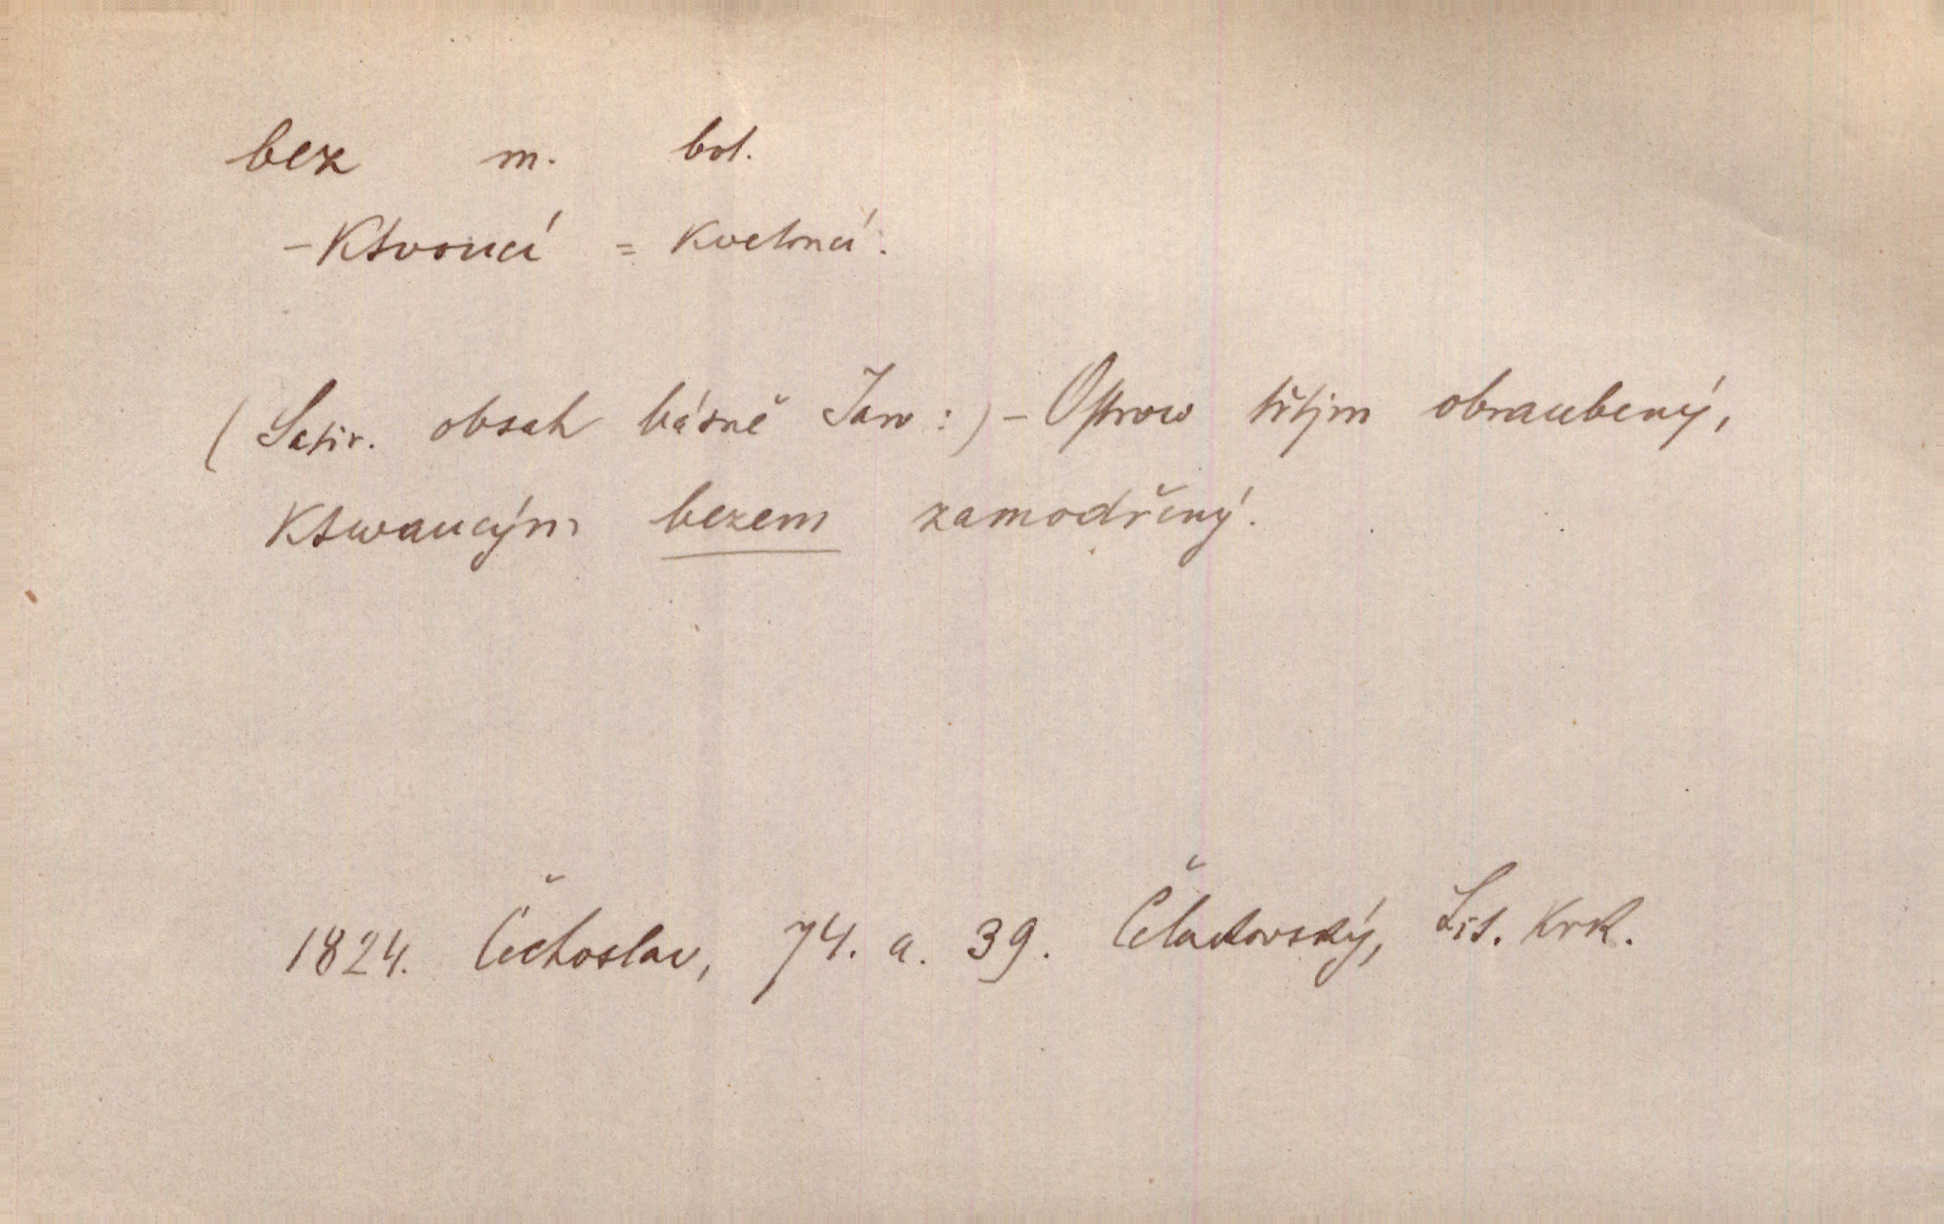 bez m. bot.
– Ktvoucí = kvetoucí.
(Satir. obsah básně Jaro:) – Ostrow třtjm obraubený,
Ktwaucým bezem zamodřený.
1824. Čechoslav, 74. a. 39. Čelakovský, Lit. Krk.